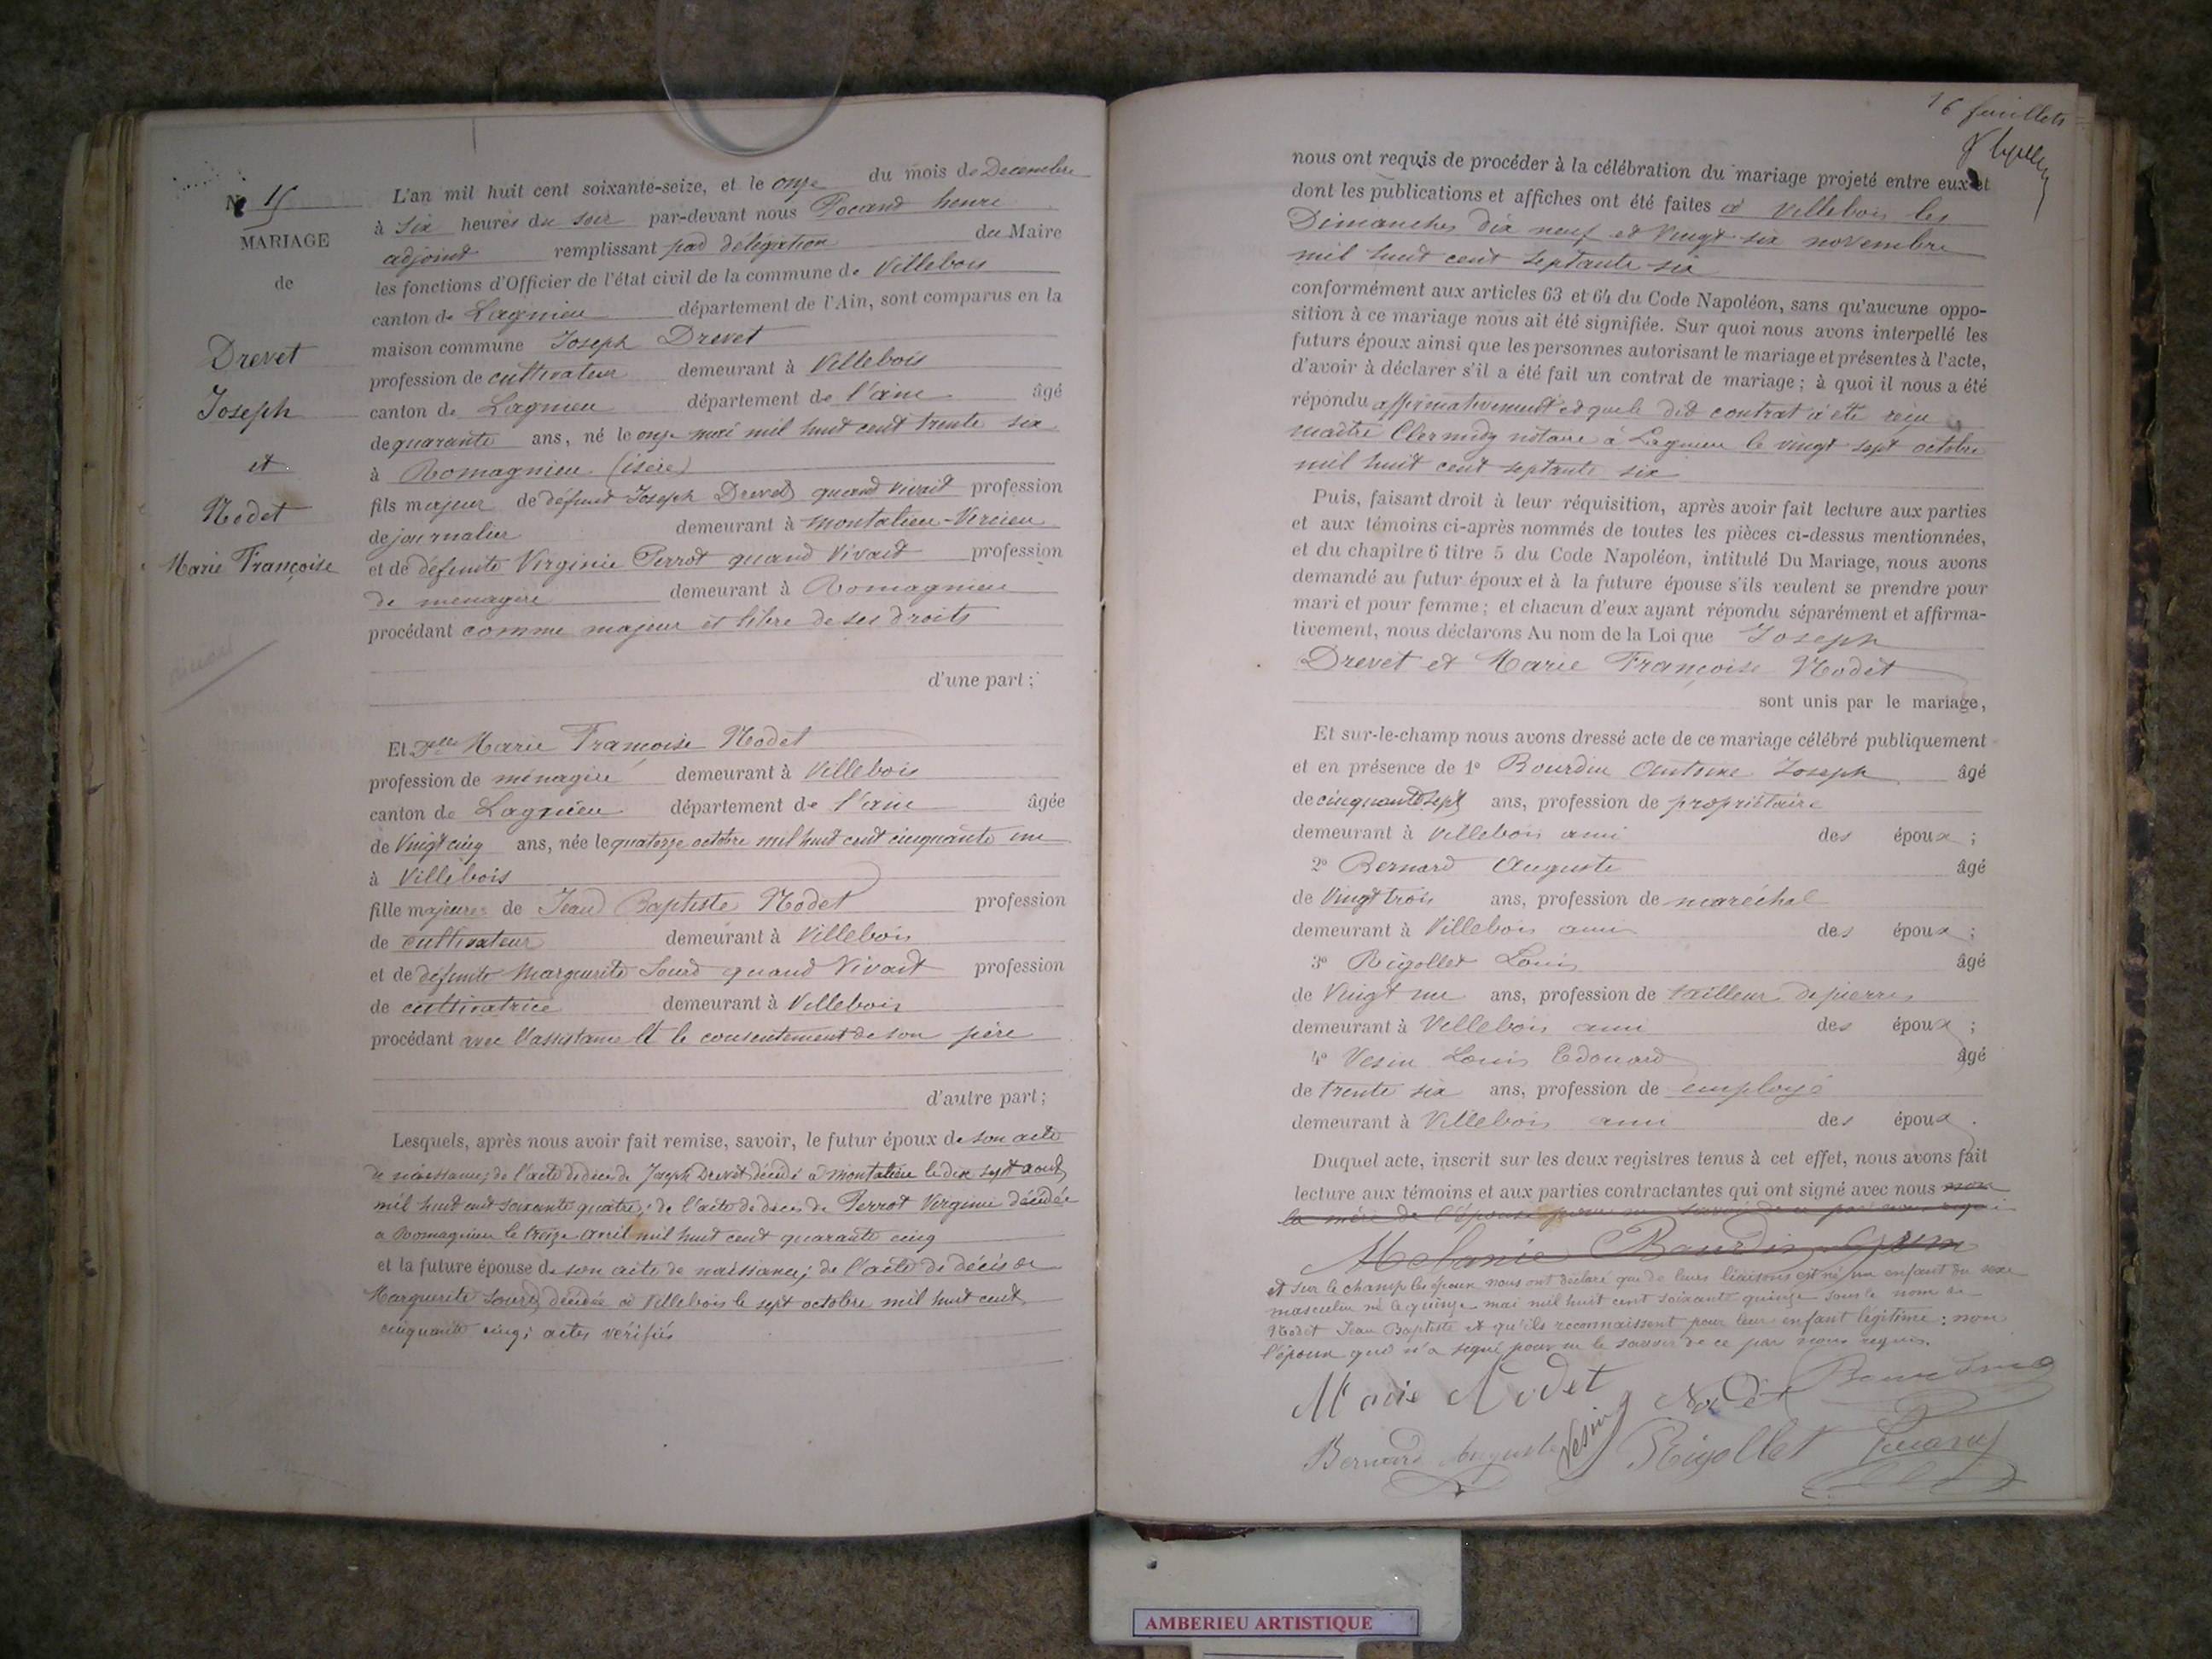 N° 15
MARIAGE
de
Drevet
Joseph
et
Nodet
Marie Françoise
L'an mil huit cent soixante-seize, et le onze du mois de Decembre
à six heures du soir par-devant nous Pocand henri
adjoint remplissant par délégation du Maire
les fonctions d'Officier de l'état civil de la commune de Villebois
canton de Lagnieu département de l'Ain, sont comparus en la
maison commune Joseph Drevet
profession de cultivateur demeurant à Villebois
canton de Lagnieu département de l'ain âgé
de quarante ans, né le onze mai mil huit cent trente six
à Romagnieu (isère)
fils majeur de défunt Joseph Drevet quand vivait profession
de journalier demeurant à Montalieu-Vercieu
et de défunte Virginie Perrot quand vivait profession
de ménagère demeurant à Romagnieu
procédant comme majeur et libre de ses droits
d'une part;
Et Delle Marie Françoise Nodet
profession de ménagère demeurant à Villebois
canton de Lagnieu département de l'ain âgée
de Vingt cinq ans, née le quatorze octobre mil huit cent cinquante un
à Villebois
fille majeure de Jean Baptiste Nodet profession
de cultivateur demeurant à Villebois
et de défunte Marguerite Sourd quand Vivait profession
de cultivatrice demeurant à Villebois
procédant avec l'assistance et le consentement de son père
d'autre part;
Lesquels, après nous avoir fait remise, savoir, le futur époux de son acte
de naissance; de l'acte de décès de Joseph Drevet décédé à Montalieu le dix sept aout
mil huit cent soixante quatre; de l'acte de décès de Perrot Virginie décédée
a Romagnieu le treize avril mil huit cent quarante cinq
et la future épouse de son acte de naissance; de l'acte de décès de
Marguerite Sourd décédée à Villebois le sept octobre mil huit cent
cinquante cinq; actes vérifiés
16 feuillets
nous ont requis de procéder à la célébration du mariage projeté entre eux et
dont les publications et affiches ont été faites à Villebois les
Dimanches dix neuf et Vingt six novembre
mil huit cent septante six
conformément aux articles 63 et 64 du Code Napoléon, sans qu'aucune oppo-
sition à ce mariage nous ait été signifiée. Sur quoi nous avons interpellé les
futurs époux ainsi que les personnes autorisant le mariage et présentes à l'acte,
d'avoir à déclarer s'il a été fait un contrat de mariage; à quoi il nous a été
répondu affirmativement et que le dit contrat à eté reçu
maître Clermidy notaire à Lagnieu le vingt sept octobre
mil huit cent septante six
Puis, faisant droit à leur réquisition, après avoir fait lecture aux parties
et aux témoins ci-après nommés de toutes les pièces ci-dessus mentionnées,
et du chapitre 6 titre 5 du Code Napoléon, intitulé Du Mariage, nous avons
demandé au futur époux et à la future épouse s'ils veulent se prendre pour
mari et pour femme; et chacun d'eux ayant répondu séparément et affirma-
tivement, nous déclarons Au nom de la Loi que Joseph
Drevet et Marie Françoise Nodet
sont unis par le mariage,
Et sur-le-champ nous avons dressé acte de ce mariage célébré publiquement
et en présence de 1° Bourdin Antoine Joseph âgé
de cinquante sept ans, profession de propriétaire
demeurant à Villebois ami des époux;
2° Bernard Auguste âgé
de Vingt trois ans, profession de maréchal
demeurant à Villebois ami des époux;
3° Rigollet Louis âgé
de Vingt un ans, profession de tailleur de pierres
demeurant à Villebois ami des époux;
4° Vesin Louis Edouard âgé
de trente six ans, profession de employé
demeurant à Villebois ami des époux.
Duquel acte, inscrit sur les deux registres tenus à cet effet, nous avons fait
lecture aux témoins et aux parties contractantes qui ont signé avec nous non
la mère de l'épouse pour ne savoir de ce par nous requi
et sur le champ les époux nous ont déclaré que de leurs liaisons est né un enfant du sexe
masculin né le quinze mai mil huit cent soixante quinze sous le nom de
Nodet Jean Baptiste et qu'ils reconnaissent pour leur enfant légitime: non
l'époux qui n'a signé pour ne le savoir de ce par nous requis.
Marie Nodet Nodet
Bernard Auguste Vesin Rigollet
AMBERIEU ARTISTIQUE